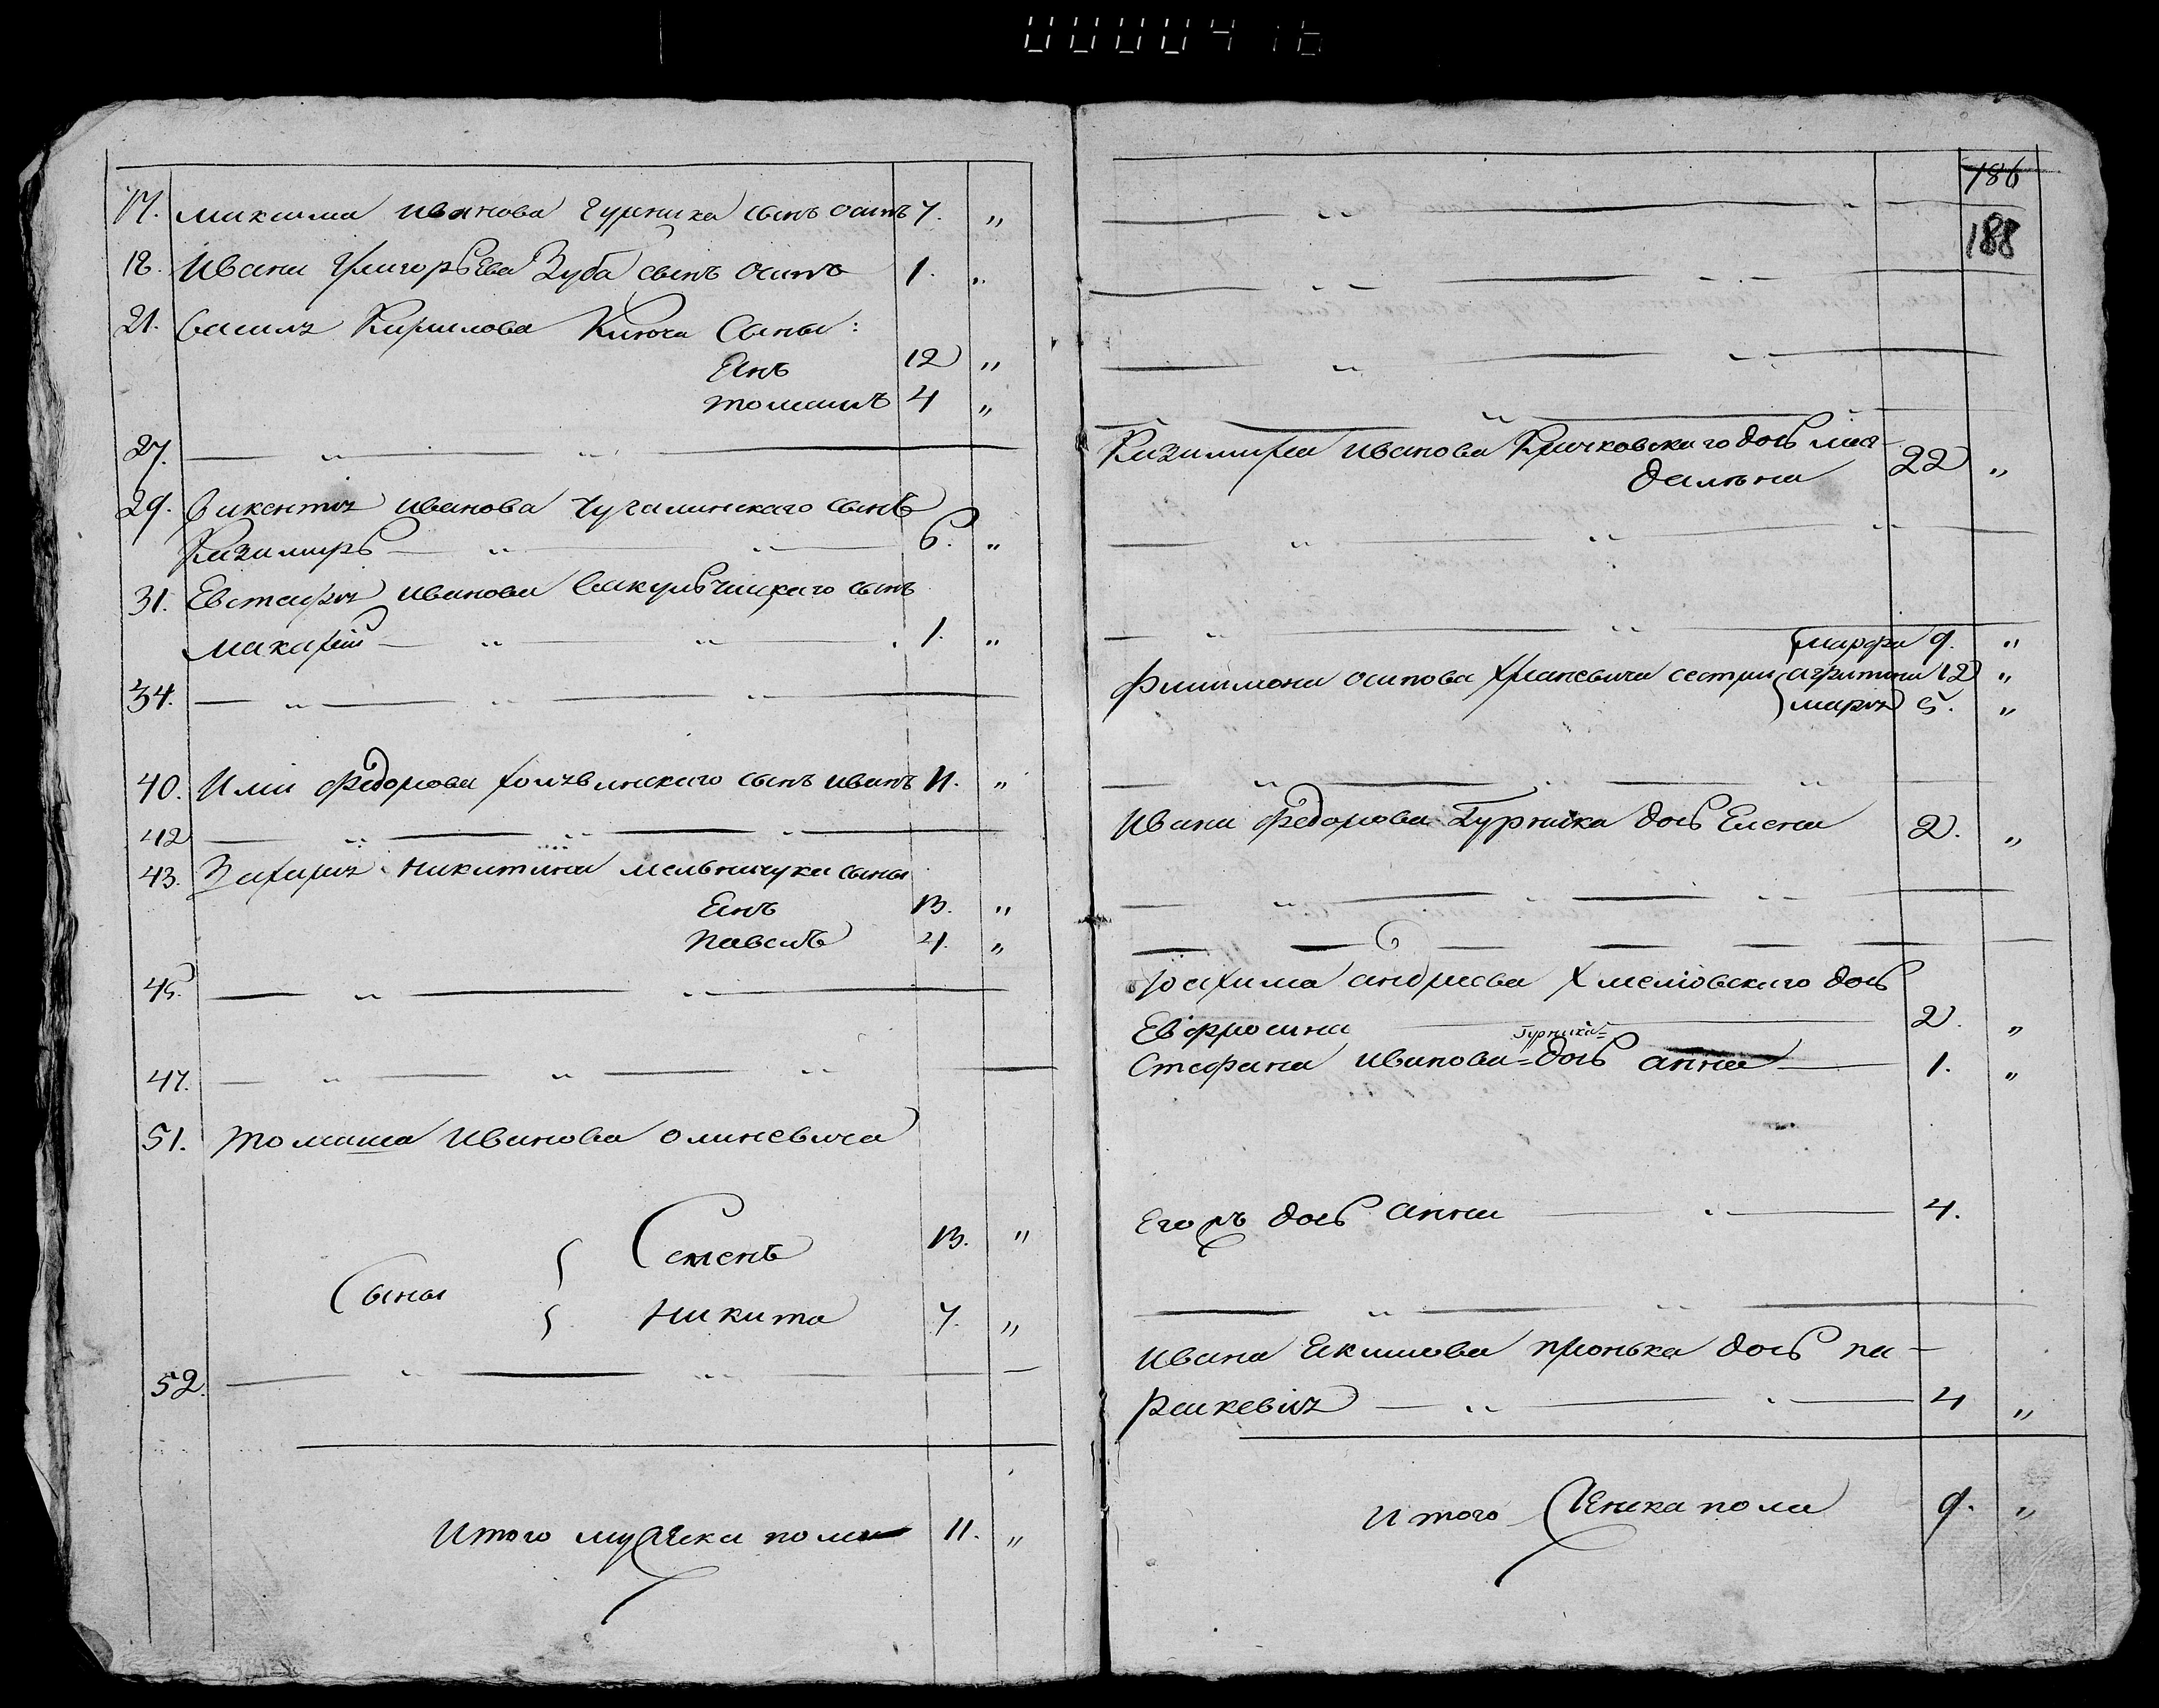 0000416
17. максима иванова гурника сынъ осипъ 7. "
18. Ивана Григорьева Зуба сынъ осипъ 1. "
21. Василя Кирилова Ключа Сыны:
Янъ 12 "
томашъ 4 "
27. " "
29. Викентія иванова сынъ
Казимиръ " " 6. "
31. Евстафія иванова сынъ
макарій " " 1. "
34. " " "
40. Ильи федорова сынъ иванъ 11. "
42 " " "
43. Захарія никитина мельничука сыны
Янъ 13. "
павелъ 4. "
45. " "
47. " " "
51. томаша Иванова олиневича
Семенъ 13. "
Сыны
никита 7. "
52. " "
Итого мужска пола 11. "
186
188
Казимира иванова Кричковскаго дочь маг-
далена 22 "
марфа 9. "
филимона осипова сестры агритина 12 "
марія 5. "
Ивана федорова Гурника дочь Елена 2. "
Іоахима андреева Хмелювскаго дочь
Евфросина 2. "
Гурника=
Стефана иванова= дочь анна 1. "
Егоръ дочь анна " 4.
Ивана Якимова пронька дочь па-
раскевія " " 4 "
итого женска пола 9. "